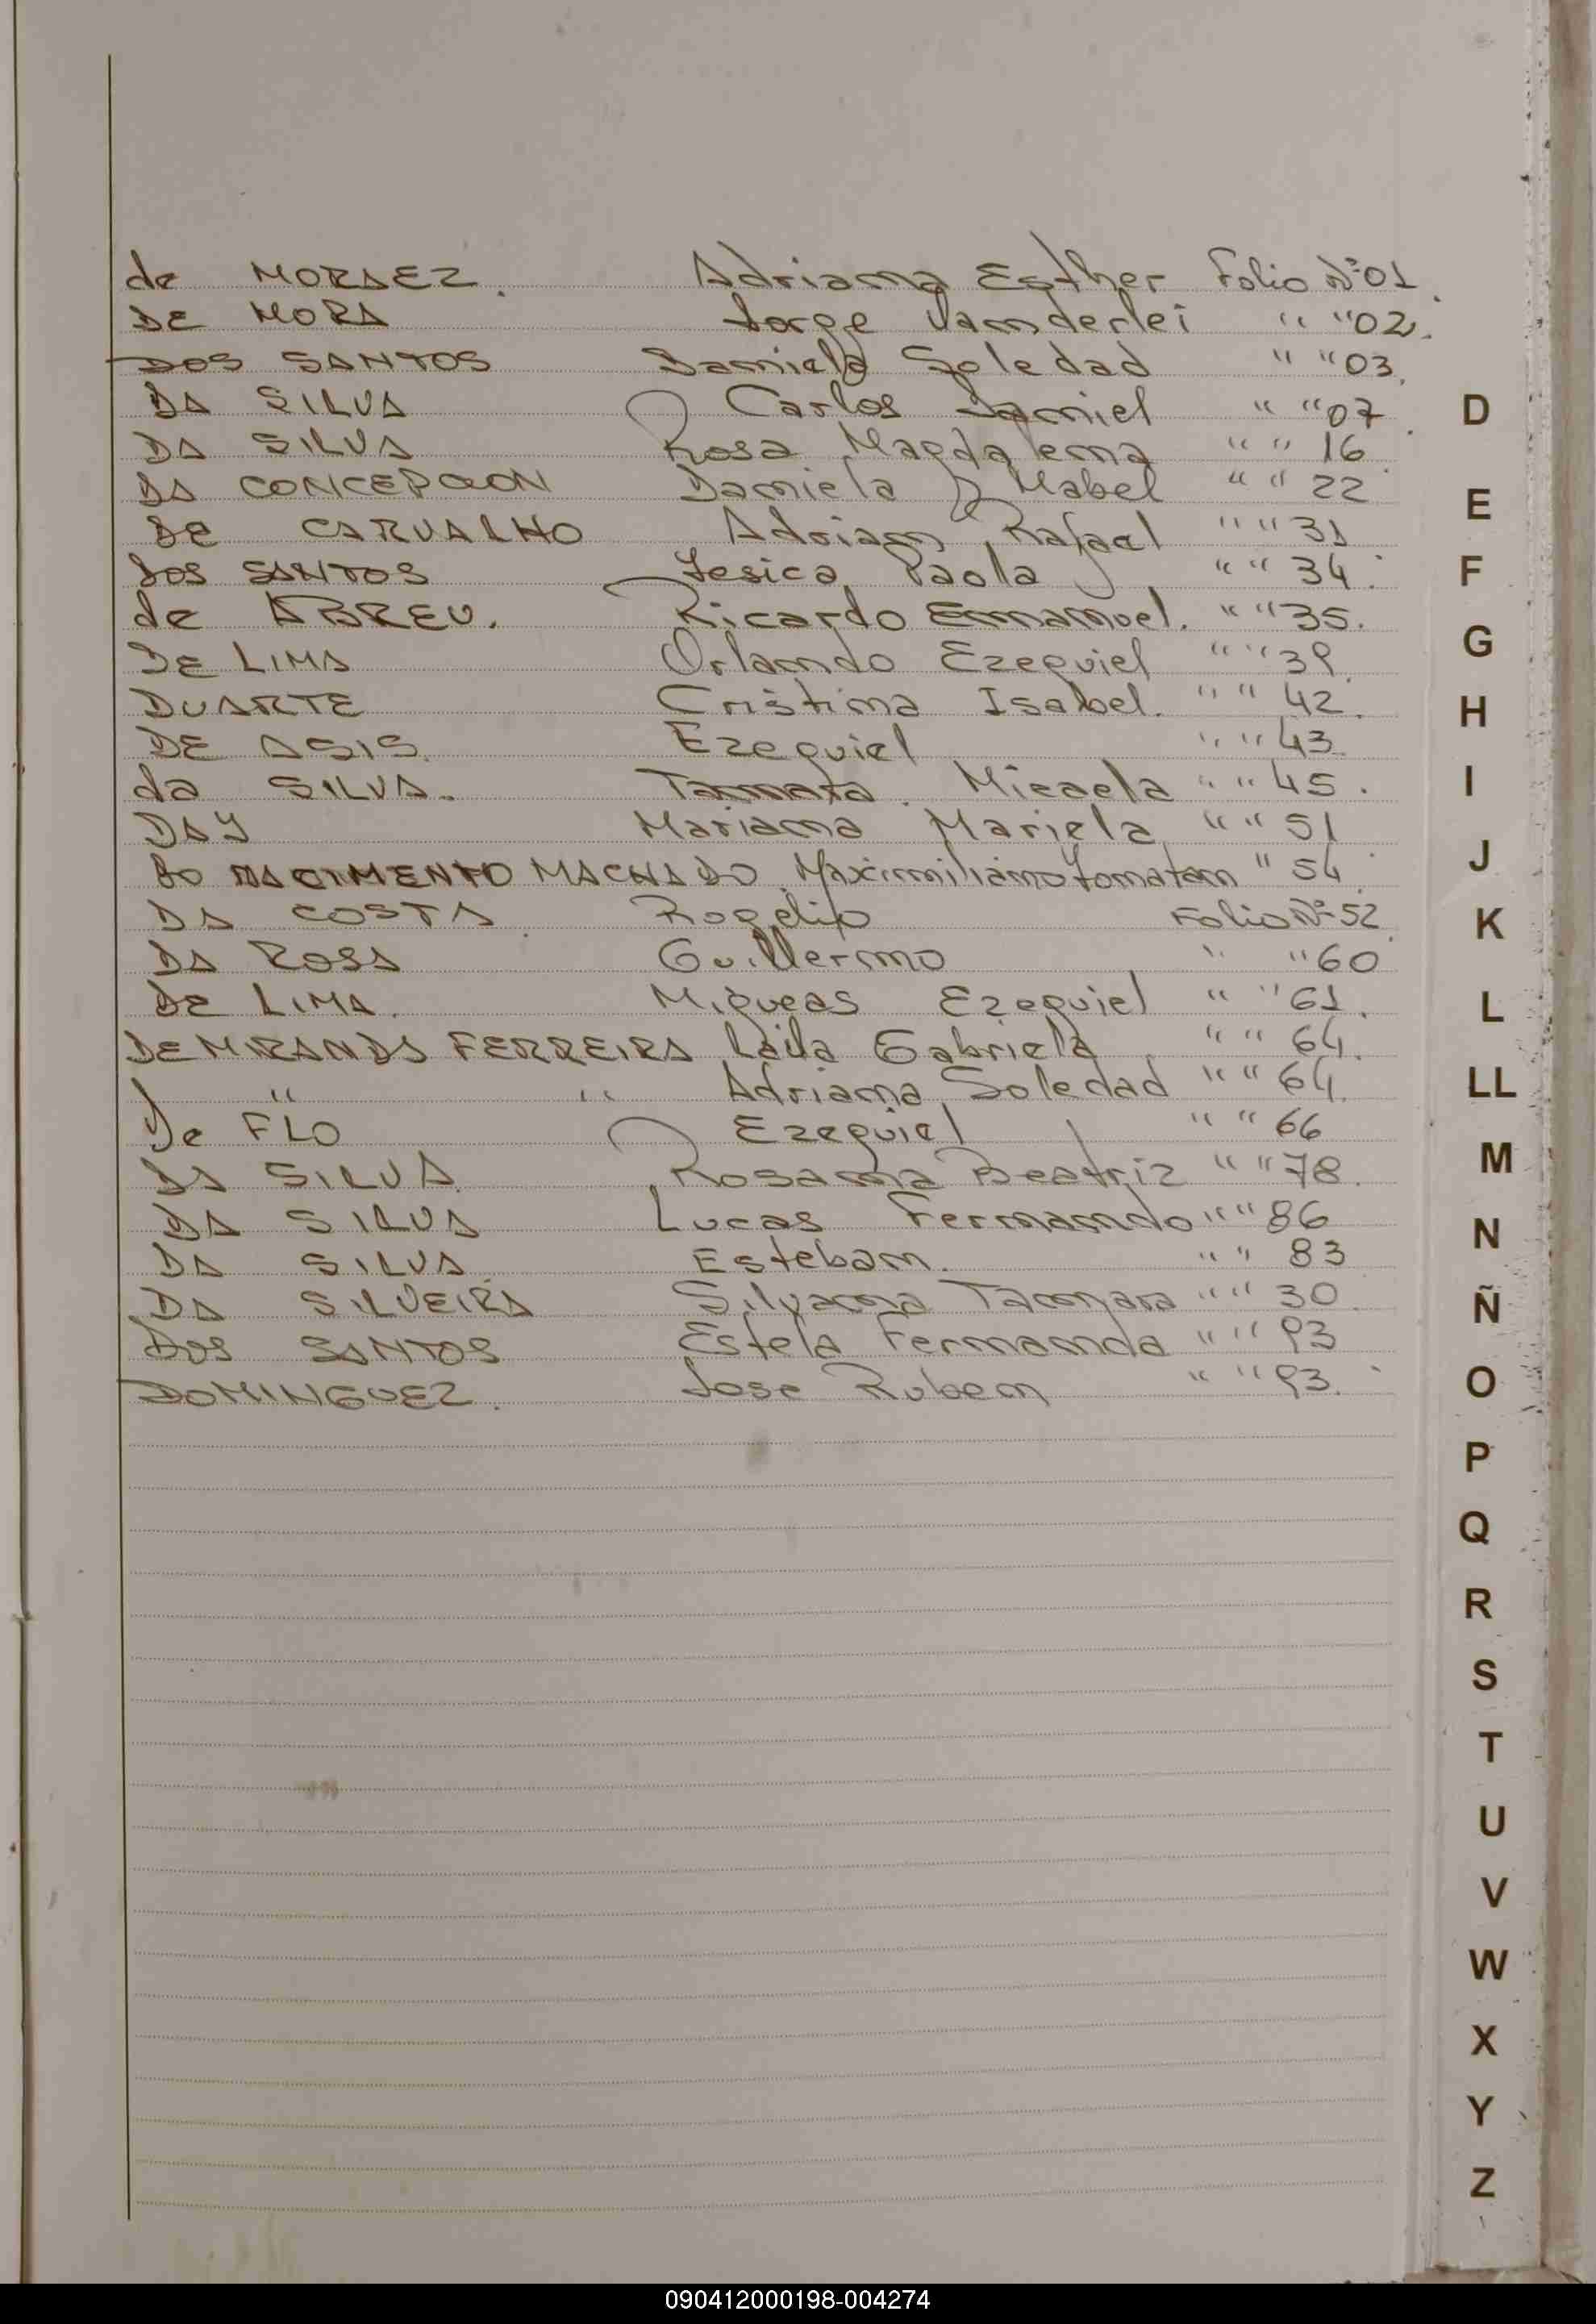 de MORAEZ. Adriana Esther Folio Nº 01.
DE MORA Jorge Vanderlei " " 02.
DOS SANTOS Daniela Soledad " " 03.
DA SILVA Carlos Daniel " " 07
DA SILVA Rosa Magdalena " " 16
DA CONCEPCION Daniela Mabel " " 22
DE CARVALHO Adrian Rafael " " 31
Dos SANTOS Jesica Paola " " 34.
de ABREU. Ricardo Emmanuel. " " 35.
DE LIMA Orlando Ezequiel " " 39
DUARTE Cristina Isabel. " " 42.
DE ASIS. Ezequiel " " 43.
da SILVA. Tamara. Micaela " " 45.
DAY Mariana Mariela " " 51
DO NACIMENTO MACHADO. Maximiliano Jonatan " 54
DA COSTA Rogelio Folio Nº 52
DA ROSA Guillermo " " 60
DE LIMA. Miqueas Ezequiel " " 61.
DE MIRANDA FERREIRA Laila Gabriela " " 64.
" " Adriana Soledad " " 64.
De FLO Ezequiel " " 66
DA SILVA Rosana Beatriz " " 78.
DA SILVA Lucas Fernando " " 86
DA SILVA Esteban. " " 83
DA SILVEIRA Silvana Tamara " " 30
Dos SANTOS Estela Fernanda " " 93
DOMINGUEZ. Jose Ruben " " 93.
D
E
F
G
H
I
J
K
L
LL
M
N
Ñ
O
P
Q
R
S
T
U
V
W
X
Y
Z
090412000198-004274